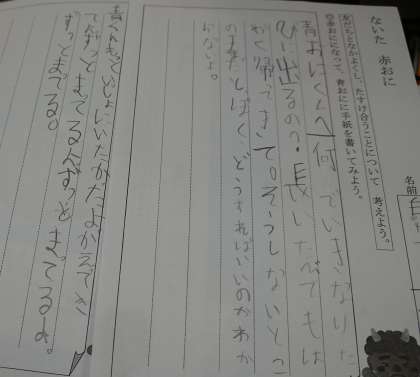 ないた 赤おに
名前
友だちとなかよくし、たすけ合うことについて、考えよう。
赤おにになって、青おにに手紙を書いてみよう。
青おにくんへ何でいきなりた
びに出るの?・長いたびでもは
やく帰ってきて。そうしないとこ
のままだとぼくどうすればいいのかわか
らないよ。
青くんもっといっしょにいたかたよかえてき
てずっとまてるんずっとまてるーよ。
ずっとまてる。